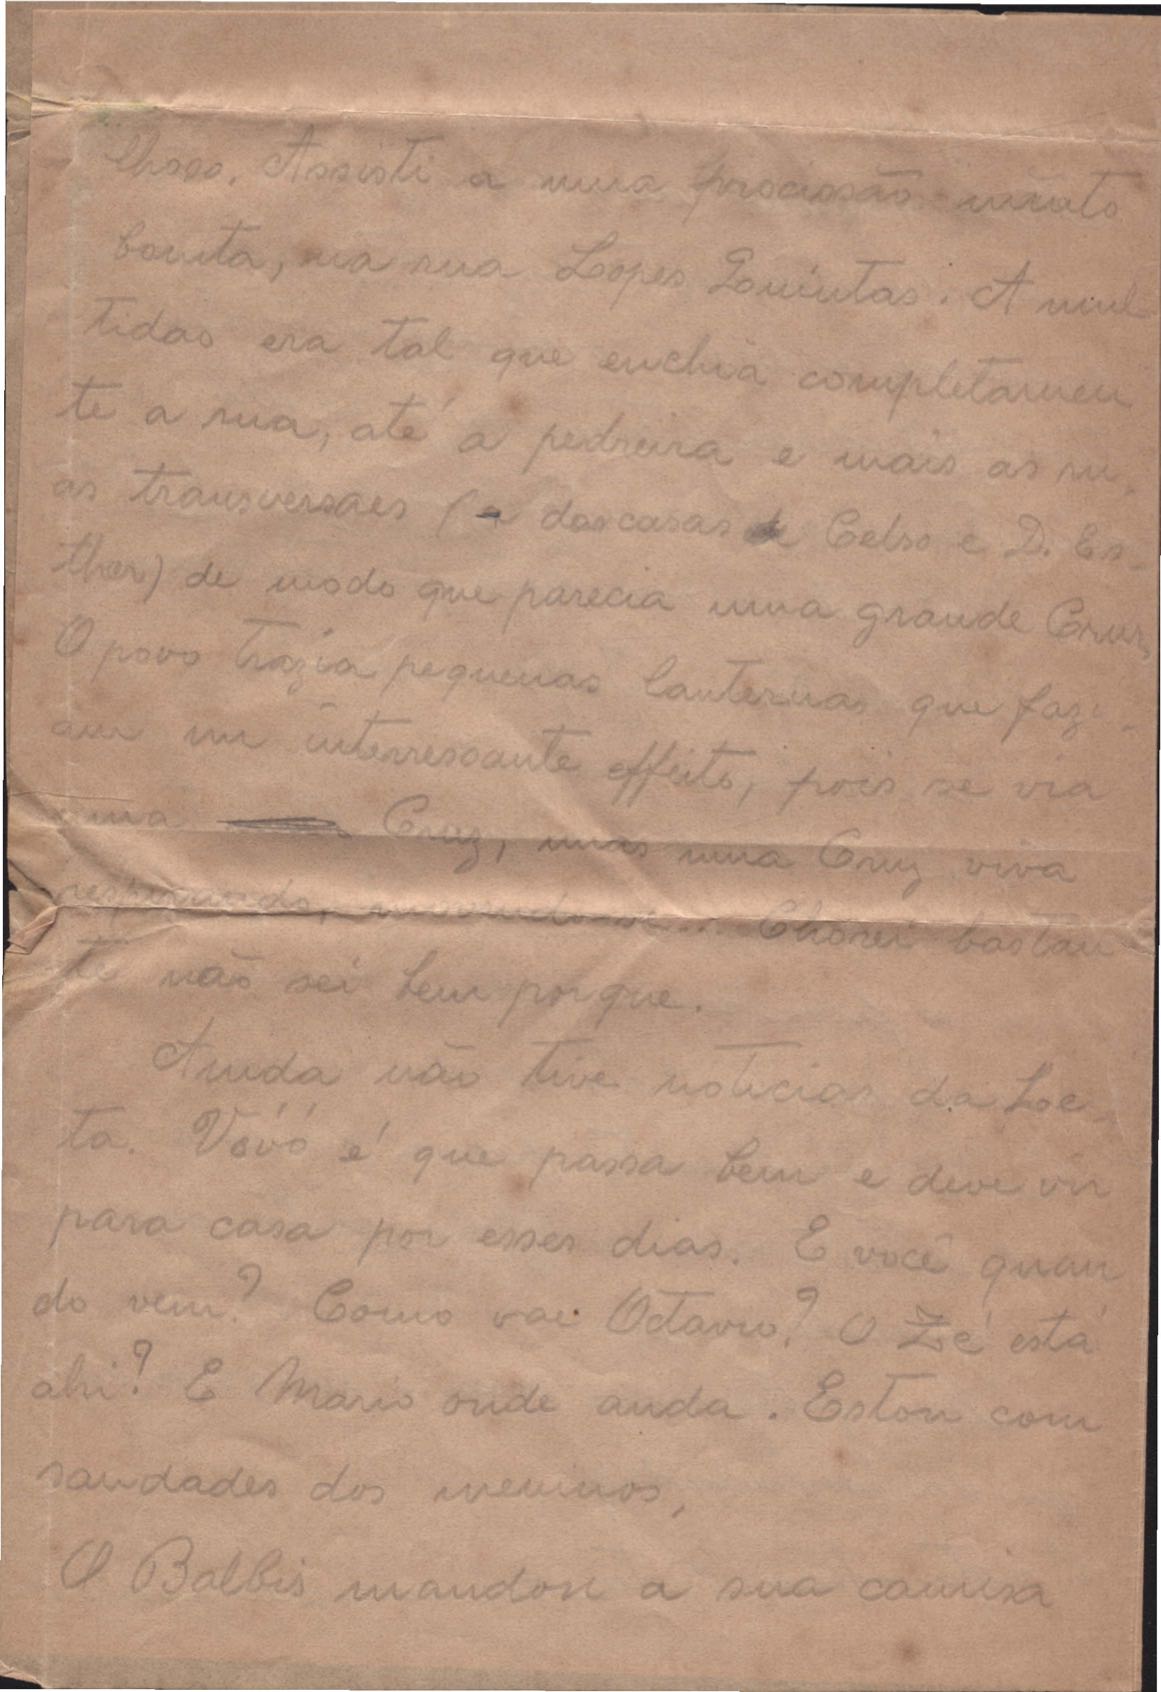 lhoso. Assisti a uma procissão muito
bonita, na rua Lopes Quintas. A mul
tidao era tal que enchia completamen
te a rua, até a pedreira e mais as ru-
as transversaes (a das casas de Celso e D. Es-
ther) de modo que parecia uma grande Cruz,
O povo trazia pequenas lanternas que fazi-
am um interressante effeito, pois se via
uma Cruz, mas uma Cruz viva
respirando, movendo-se... Chorei bastan
te não sei bem porque.
Ainda não tive noticias da Loe-
ta. Vóvó é que passa bem e deve vir
para casa por esses dias. E você quan
do vem? Como vai Octavio? O Zé está
ahi? E Mario onde anda. Estou com
saudades dos meninos,
O Balbis mandou a sua camisa